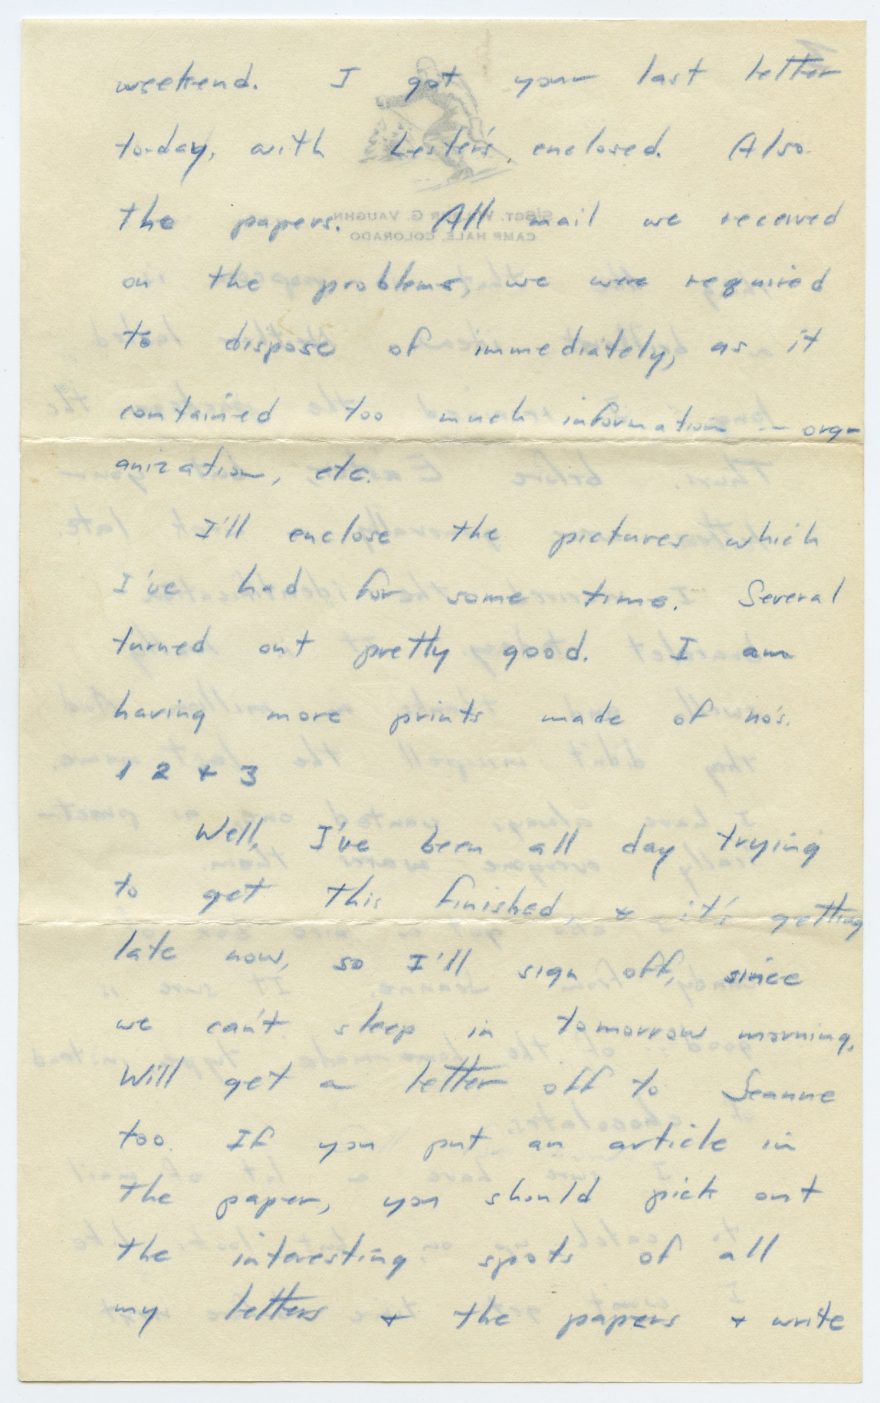 weekend. I got your last letter
to-day, with Lester's, enclosed. Also
the papers. All mail we received
on the problems, we were required
to dispose of immediately, as it
contained too much information -- org-
anization, etc.
I'll enclose the pictures which
I've had for some time. Several
turned out pretty good. I am
having more prints made of no's.
1 2 + 3
Well, I've been all day trying
to get this finished, + it's getting
late now, so I'll sign off, since
we can't sleep in tomorrow morning.
Will get a letter off to Jeanne
too. If you put an article in
the paper, you should pick out
the interesting spots of all
my letters + the papers + write